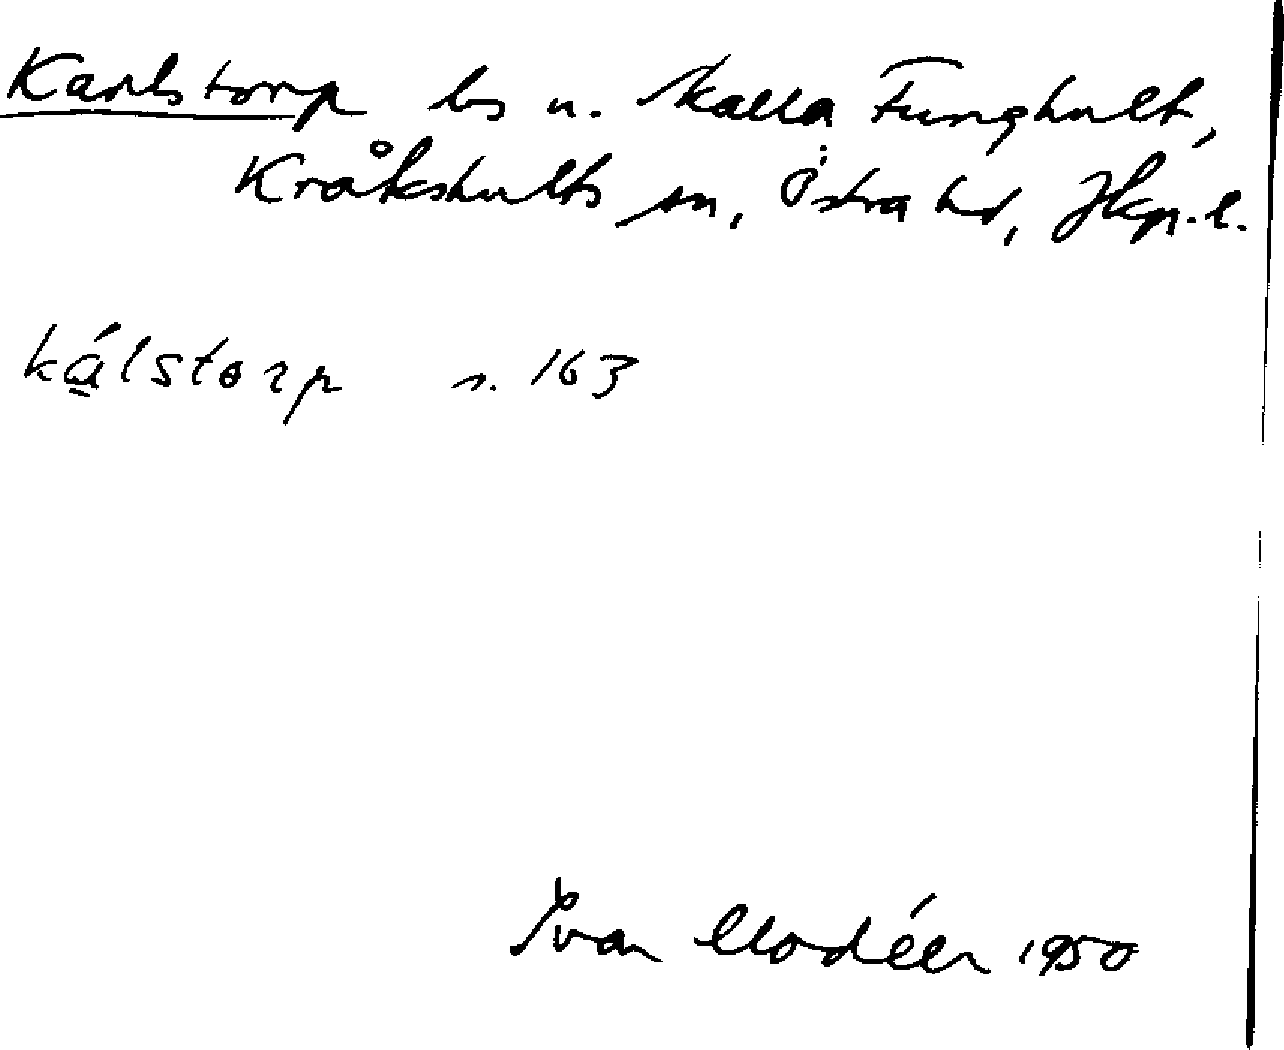 Karlstorp ls u. Skälla Funghult,
Kråkshults sn, Östra hd, Jkp. l.
kálstorp s. 163
Ivar Modéer 1950